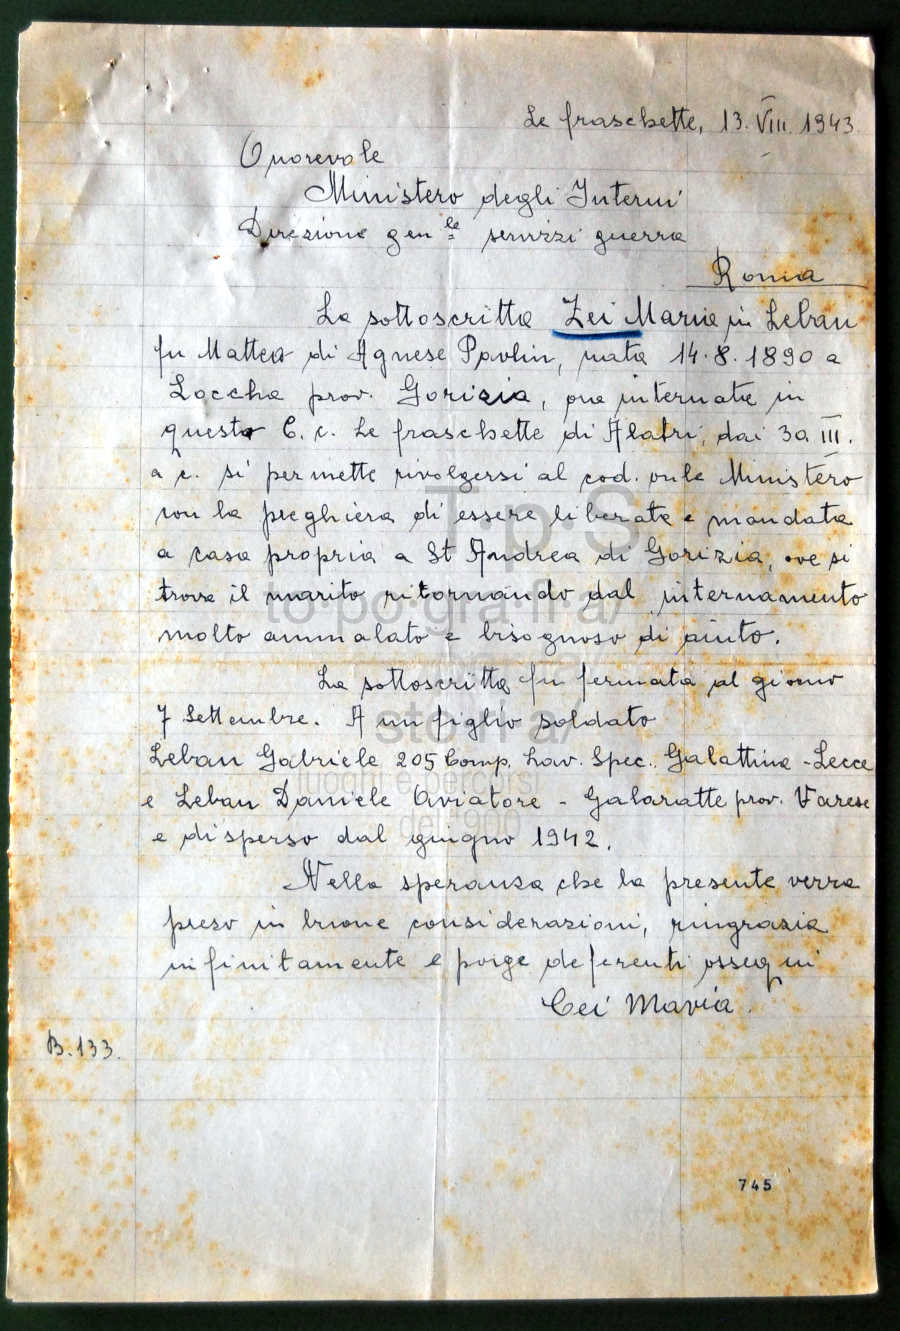 Le fraschette, 13. VIII. 1943
Onorevole
Ministero degli Interni
Direzione gen le servizzi guerra
Roma
La sottoscritta Zei Maria in Leban
fu Mattea di Agnese Pavlin, nata 14.8.1890 a
Loccha prov. Gorizia, ora internata in
questo C. c. Le fraschette di Alatri, dai 30 III.
a c. si permette rivolgersi al cod. on le Ministero
con la preghiera di essere liberata e mandata
a casa propria a St Andrea di Gorizia, ove si
trova il marito ritornando dal internamento
molto ammalato e bisognoso di aiuto.
La sottoscritta fu fermata al giorno
7 Settembre. A un figlio soldato
Leban Gabriele 205 Comp. Lav. Spec. Galattina - Lecce
e Leban Daniele Aviatore - Galaratte prov. Varese
e disperso dal giugno 1942.
Nella speranza che la presente verra
preso in buone considerazioni, ringrazia
infinitamente e porge deferenti ossequi
Cei Maria.
B. 133.
745
T·p·S
to·po·gra·fi·a/
sto·ri·a/
luoghi e percorsi
del '900